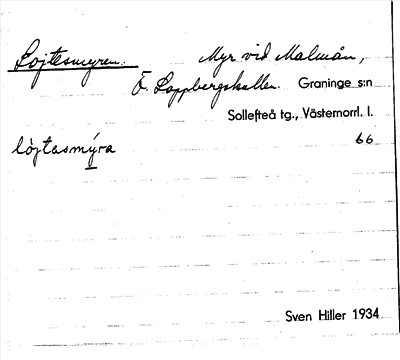 Lojtesmyren. Myr vid Malmån,
Ö. Lappbergskullen. Graninge s:n
Sollefteå tg., Västernorrl. l.
löjtasmýra 66
Sven Hiller 1934